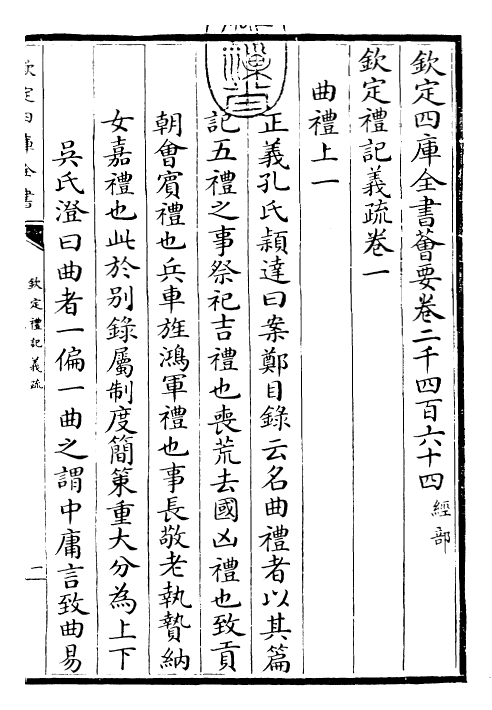 欽定四庫全書薈要卷二千四百六十四 經部
欽定禮記義疏卷一
曲禮上一
正義孔氏穎達曰案鄭目錄云名曲禮者以其篇
記五禮之事祭祀吉禮也喪荒去國凶禮也致貢
朝會賓禮也兵車旌鴻軍禮也事長敬老執贄納
女嘉禮也此於別錄屬制度簡策重大分為上下
吳氏澄曰曲者一偏一曲之謂中庸言致曲易
欽定四庫全書
欽定禮記義疏